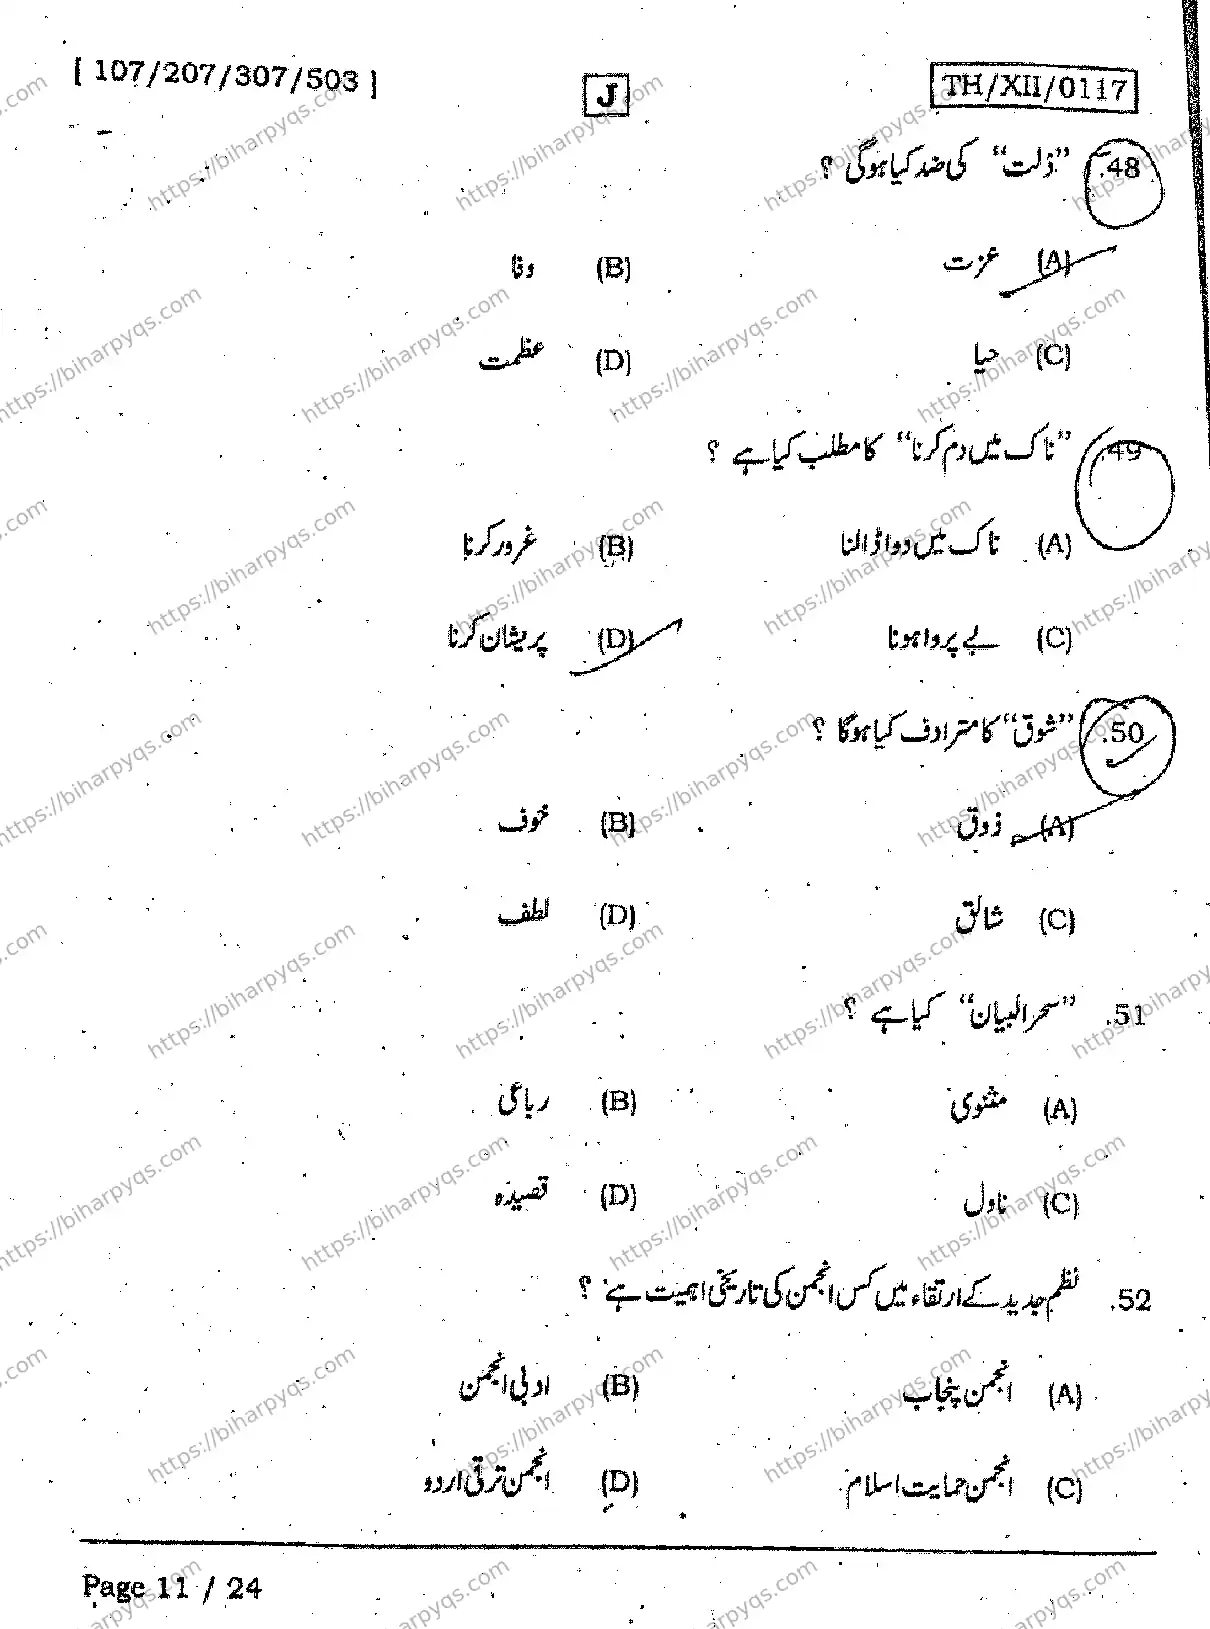 [ 107/207/307/503 ] J TH/XII/0117
48. “ذلت“ کی ضد کیا ہوگی ؟
(A) عزت (B) وفا
(C) حیا (D) عظمت
49. “ناک میں دم کرنا“ کا مطلب کیا ہے ؟
(A) ناک میں دوا ڈالنا (B) غرور کرنا
(C) بے پرواہونا (D) پریشان کرنا
50. “شوق“ کا مترادف کیا ہوگا ؟
(A) ذوق (B) خوف
(C) شائق (D) لطف
51. “سحرالبیان“ کیا ہے ؟
(A) مثنوی (B) رباعی
(C) ناول (D) قصیدہ
52. نظم جدید کے ارتقاء میں کس انجمن کی تاریخی اہمیت ہے ؟
(A) انجمن پنجاب (B) ادبی انجمن
(C) انجمن حمایت اسلام (D) انجمن ترقی اردو
Page 11 / 24
https://biharpyqs.com